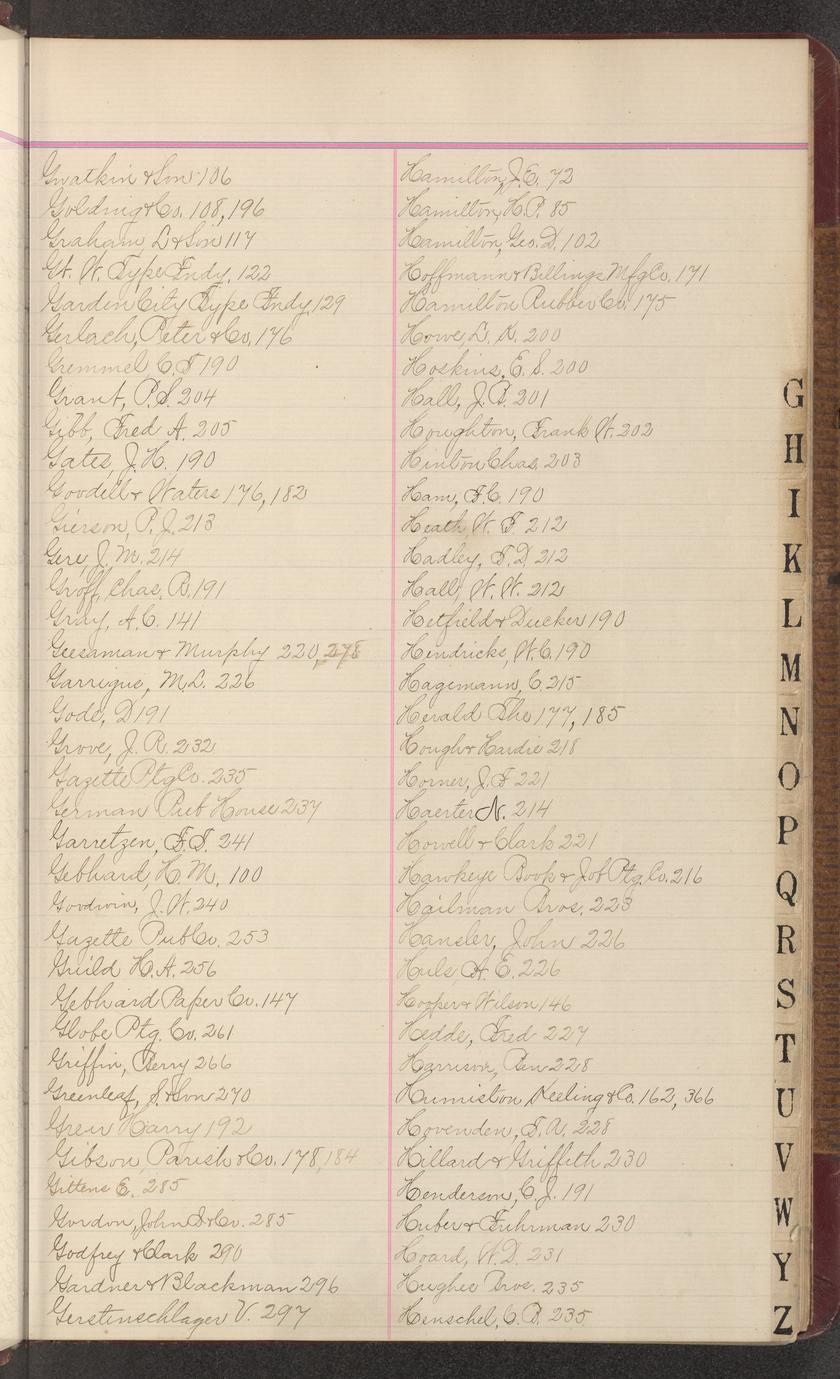 Gwatkin & Son 106
Golding & Co. 108, 196
Graham, L & Son 117
Gt. W. Type Fndy. 122
Garden City Type Fndy 129
Gerlach, Peter & Co. 176
Gremmel C. F 190
Grant, P. S. 204
Gibb, Fred A. 205
Gates, J. H. 190
Goodell & Waters 176, 182
Gierson, P. J. 213
Gere, J. M. 214
Groff, Chas. R. 191
Gray, A. C. 141
Geesaman & Murphy 220, 278
Garrigue, M. L. 226
Gode, D 191
Grove, J. R. 232
Gazette Ptg Co. 235
German Pub House 237
Garretzen, F. T. 241
Gebhard, H. M. 100
Goodwin, J. W. 240
Gazette Pub Co. 253
Guild H. A. 256
Gebhard Paper Co. 147
Globe Ptg. Co. 261
Griffin, Perry 266
Greenleaf, S. & Son 270
Greir Harry 192
Gibson, Parish & Co. 178, 184
Gittens E. 285
Gordon, John & Co. 285
Godfrey & Clark 290
Gardner & Blackman 296
Gerstinschlager V. 297
Hamilton, J. E. 72
Hamilton, H. P. 85
Hamilton, Geo. D. 102
Hoffmann & Billings Mfg Co. 171
Hamilton Rubber Co. 175
Howe, L. K. 200
Hoskins, E. S. 200
Hall, J. B. 201
Houghton, Frank W. 202
Hinton Chas. 203
Ham, F. C. 190
Heath W. F. 212
Hadley, F. D. 212
Hall, W. W. 212
Hetfield & Ducker 190
Hendricks, W. C. 190
Hagemann, C. 215
Herald The 177, 185
Hough & Hardie 218
Horner, J. F 221
Haerter N. 214
Howell & Clark 221
Hawkeye Book & Job Ptg. Co. 216
Hailman Bros. 223
Hansler, John 226
Huls, A. E. 226
Hooper & Wilson 146
Hedde, Fred 227
Harrison, Ben 228
Humiston Keeling & Co. 162, 366
Hovenden, T. A. 228
Hillard & Griffith 230
Henderson, C. J. 191
Huber & Fuhrman 230
Hoard, W. D. 231
Hughes Bros. 235
Henschel, C. B. 235
G
H
I
K
L
M
N
O
P
Q
R
S
T
U
V
W
Y
Z